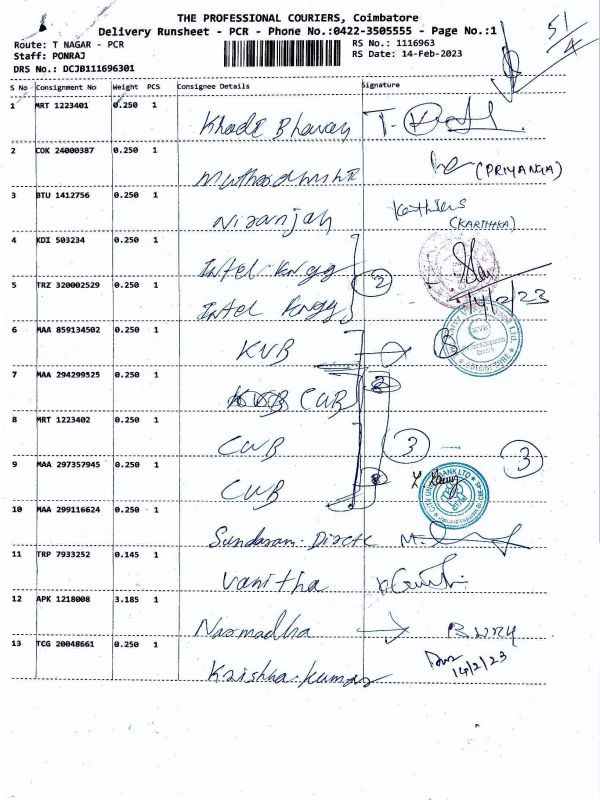 THE PROFESSIONAL COURIERS, Coimbatore
Delivery Runsheet - PCR - Phone No.:0422-3505555 - Page No.:1
51/4
Route: T NAGAR - PCR
RS No.: 1116963
Staff: PONRAJ
RS Date: 14-Feb-2023
DRS No.: DCJB111696301
S No Consignment No Weight PCS Consignee Details Signature
1 MRT 1223401 0.250 1
Khadi Bhavan
2 COK 24000387 0.250 1
(PRIYANGA)
3 BTU 1412756 0.250 1
Niranjan
(KARTHIKA)
4 KDI 503234 0.250 1
Intel Engg
2
5 TRZ 320002529 0.250 1
Intel Engg
14/2/23
6 MAA 859134502 0.250 1
KVB
7 MAA 294299525 0.250 1
CUB
8 MRT 1223402 0.250 1
CUB
3
3
9 MAA 297357945 0.250 1
CUB
CITY UNION BANK LTD
10 MAA 299116624 0.250 1
Sundaram Direct
11 TRP 7933252 0.145 1
Vanitha
12 APK 1218008 3.185 1
Narmadha
13 TCG 20048661 0.250 1
14/2/23
Krishna kumar